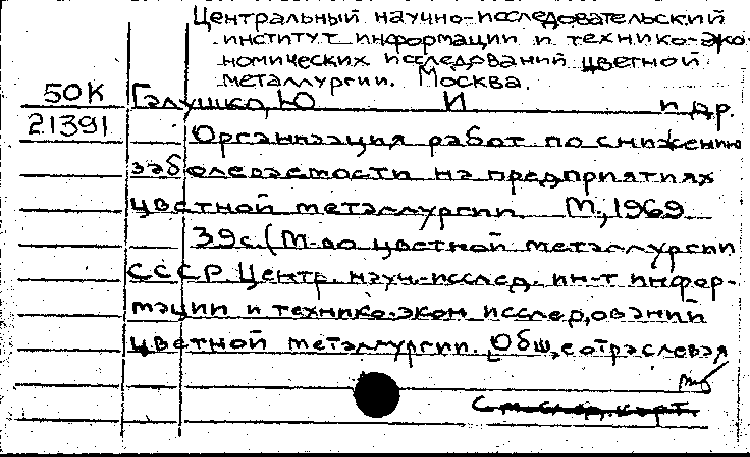 Центральный научно-исследовательский
институт информации и технико-эко-
номических исследований цветной
металлургии. Москва.
50К Галушко, Ю И и др.
21391 Организация работ по снижению
заболеваемости на предприятиях
цветной металлургии. М., 1969
39с. (М-во цветной металлургии
СССР. Центр. науч.-исслед. ин-т инфор-
мации и технико-экон. исследований
цветной металлургии. Общеотраслевая
См. след. карт.